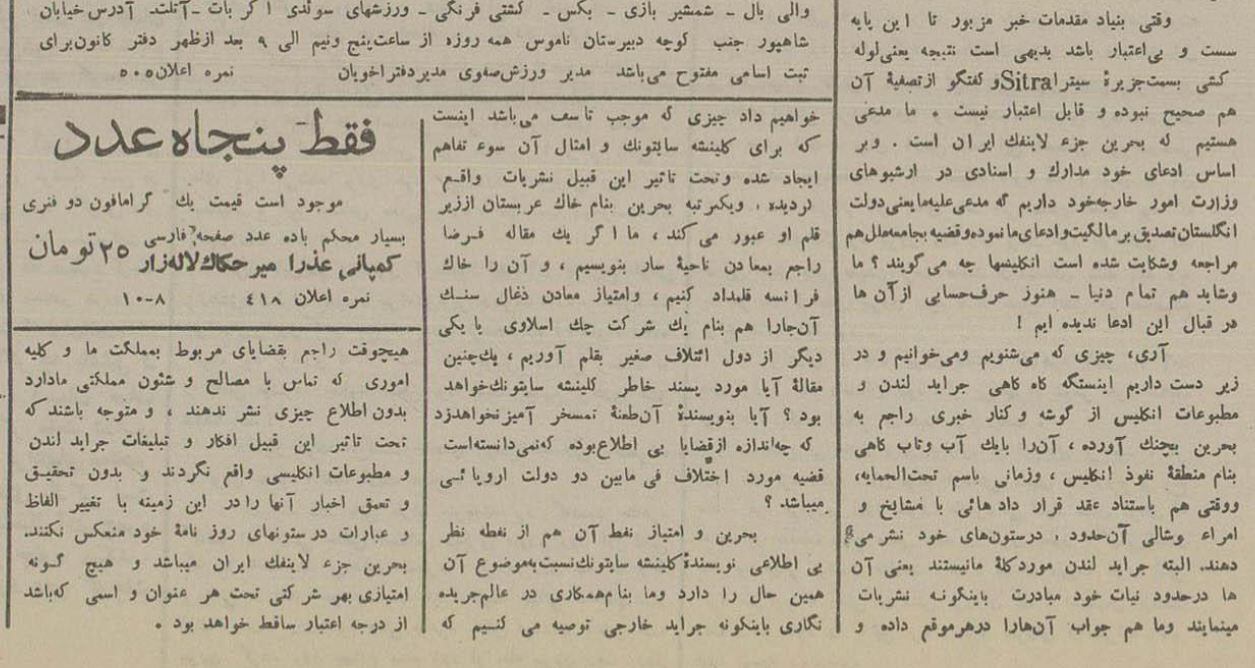 وقتی بنیاد مقدمات خبر مزبور تا این پایه
سست و بی‌اعتبار باشد بدیهی است نتیجه یعنی‌لوله
کشی بسمت‌جزیرهٔ سیترا Sitra و گفتگو ازتصفیهٔ آن
هم صحیح نبوده و قابل اعتبار نیست . ما مدعی
هستیم که بحرین جزء لاینفك ایران است . وبر
اساس ادعای خود مدارك و اسنادی در ارشیوهای
وزارت امور خارجه‌خود داریم که مدعی‌علیه‌ما‌یعنی‌دولت
انگلستان‌تصدیق بر‌مالکیت‌و‌ادعای‌ما‌نموده‌و‌قضیه بجامعه‌ملل‌هم
مراجعه وشکایت شده است انگلیسها چه می‌گویند ؟ ما
وشاید هم تمام دنیا ـ هنوز حرف‌حسابی ازآن ها
در قبال این ادعا ندیده ایم !
آری، چیزی که می‌شنویم ومی‌خوانیم و در
زیر دست داریم اینستکه گاه گاهی جراید لندن و
مطبوعات انگلیس از گوشه و کنار خبری راجم به
بحرین بچنك آورده ، آن‌را بایك آب وتاب گاهی
بنام منطقهٔ نفوذ انگلیس ، وزمانی باسم تحت‌الحمایه،
ووقتی هم باستناد عقد قرار داد هائی با مشایخ و
امراء وشالی آن‌حدود ، درستون‌های خود نشر می
دهند. البته جراید لندن مورد‌گلهٔ مانیستند یعنی آن
ها درحدود نیات خود مبادرت باینگونه نشریات
مینمایند وما هم جواب آن‌هارا درهرموقع داده و
والی بال ـ شمشیر بازی ـ بکس ـ کشتی فرنگی ـ ورزشهای سوئدی اکر بات ـ آتلت. آدرس خیابان
شاهپور جنب کوچه دبیرستان ناموس همه روزه از ساعت‌پنج ونیم الی ۹ بعد ازظهر دفتر کانون‌برای
ثبت اسامی مفتوح می‌باشد مدیر ورزش‌صفوی مدیردفتراخویان نمره اعلان۵۰۵
خواهیم داد چیزی که موجب تاسف می‌باشد اینست
که برای کلینشه سایتونك و امثال آن سوء تفاهم
ایجاد شده وتحت تاثیر این قبیل نشریات واقـم
گردیده ، ویکمرتبه بحرین بنام خاك عربستان اززیر
قلم او عبور می کند ، ما اگر یك مقاله فـرضا
راجم بمعادن ناحیهٔ سار بنویسیم ، و آن را خاك
فرانسه قلمداد کنیم ، وامتیاز معادن ذغال سنـك
آن‌جارا هم بنام یك شرکت چك اسلاوی یا یکی
دیگر از دول ائتلاف صغیر بقلم آوریم ، یك‌چنین
مقالهٔ آیا مورد پسند خاطر کلینشه سایتونك‌خواهد
بود ؟ آیا بنویسندهٔ آن‌طعنهٔ تمسخر آمیز نخواهدزد
که چه‌اندازه ازقضایا بی اطلاع‌بوده که‌نمی‌دانسته‌است
قضیه مورد اختلاف فی مابین دو دولت اروپائـی
میباشد ؟
بحرین و امتیاز نفط آن هم از نفطه نظر
بی اطلاعی نویسندهٔ کلینشه سایتونك‌نسبت‌به‌موضوع آن
همین حال را دارد وما بنام‌همکاری در عالم‌جریده
نگاری باینگونه جراید خارجی توصیه می کنـیم که
فقط پنجاه عدد
موجود است قیمت یك گرامافون دو فنری
بسیار محکم باده عدد صفحه فارسی ۲۵ تومان
کمپانی عذرا میر حکاك لاله‌زار
نمره اعلان ٤١٨ ۸-۱۰
هیچوقت راجم بقضایای مربوط بمملکت ما و کلیه
اموری که تماس با مصالح و شئون مملکتی مادارد
بدون اطلاع چیزی نشر ندهند ، و متوجه باشند که
تحت تاثیر این قبیل افکار و تبلیغات جراید لندن
و مطبوعات انگلیسی واقم نگردند و بدون تحقیـق
و تعمق اخبار آنها را در این زمینه با تغییر الفاظ
و عبارات درستونهای روز نامهٔ خود منعکس نکنند.
بحرین جزء لاینفك ایران میباشد و هیچ گـونه
امتیازی بهر شرکتی تحت هر عنوان و اسمی که‌باشد
از درجه اعتبار ساقط خواهد بود .